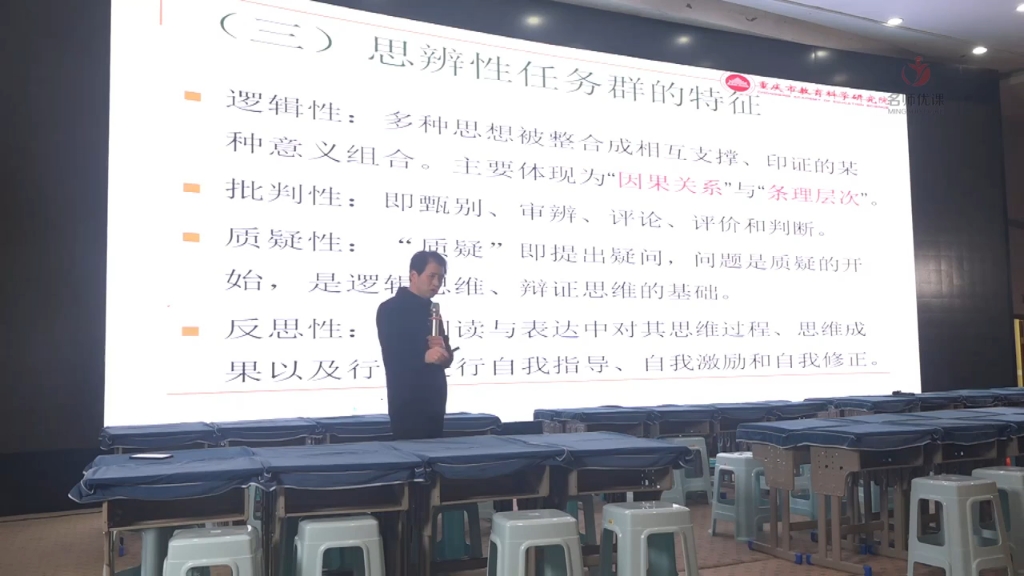 （三）思辨性任务群的特征
重庆市教育科学研究院
名师优课
逻辑性：多种思想被整合成相互支撑、印证的某
种意义组合。主要体现为“因果关系”与“条理层次”。
批判性：即甄别、审辨、评论、评价和判断。
质疑性：“质疑”即提出疑问，问题是质疑的开
始，是逻辑思维、辩证思维的基础。
反思性：阅读与表达中对其思维过程、思维成
果以及行 行自我指导、自我激励和自我修正。